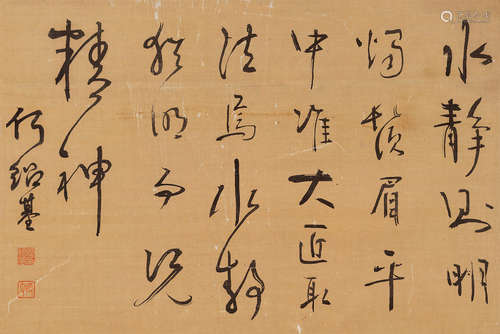 水静则明
烛须眉平
中准大匠取
法焉水静
犹明而况
精神
何绍基